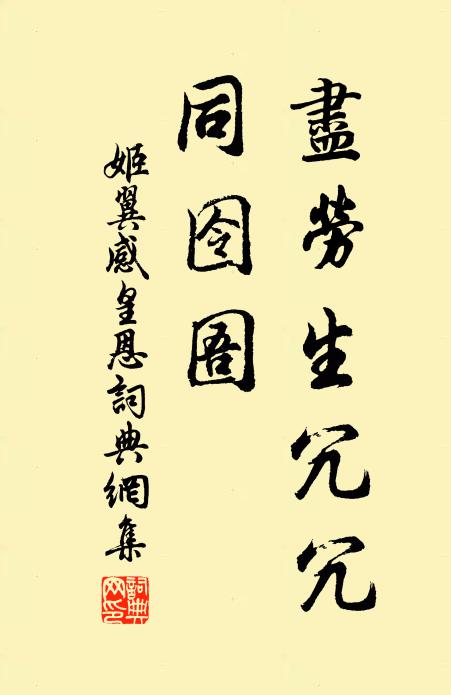 盡勞生冗冗
同囹圄
姬翼感皇恩詞典網集
詞典网印